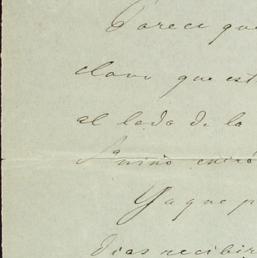 Parece que
claro que est
al lado de la
niño
Ya que p
dias recibir